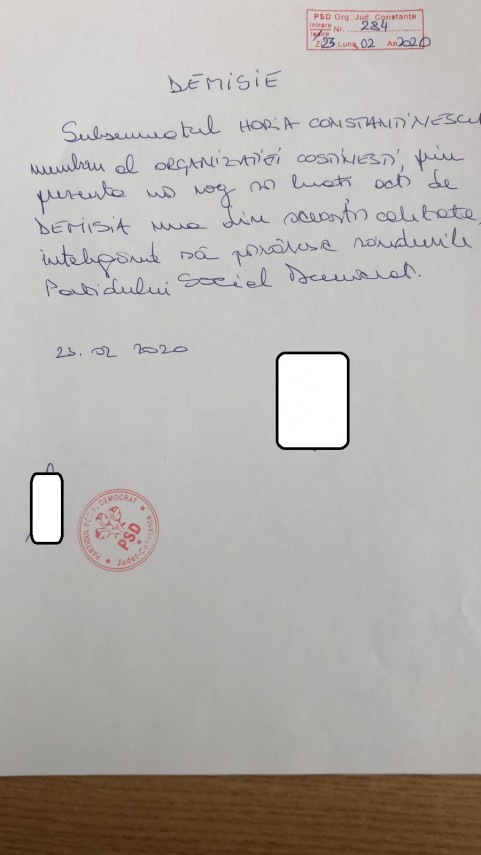 PSD Org. Jud. Constanța
Intrare
Ieșire Nr. 284
Ziua 25 Luna 02 An 2020
DEMISIE
Subsemnatul HORIA CONSTANTINESCU
membru al ORGANIZAȚIEI COSTINEȘTI, prin
prezenta vă rog să luați act de
DEMISIA mea din această calitate,
înțelegând să părăsesc rândurile
Partidului Social Democrat.
25. 02 2020
PARTIDUL SOCIAL DEMOCRAT
PSD